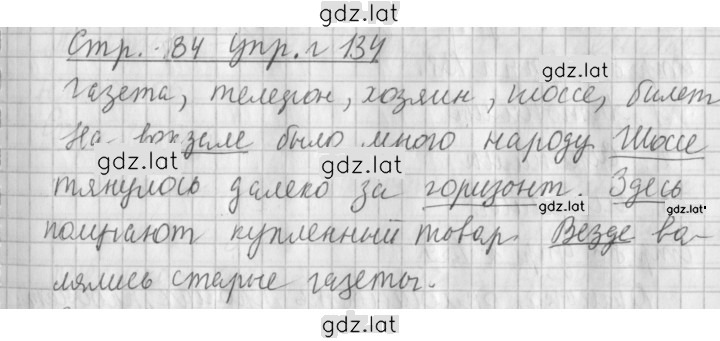 gdz.lat
Стр. 84 упр. г 134
gdz.lat
газета, телефон, хозяин, шоссе, билет
На вокзале было много народу. Шоссе
gdz.lat gdz.lat gdz.lat
тянулось далеко за горизонт. Здесь
gdz.lat gdz.lat
купленный товар. Везде ва-
лялись старые газеты.
gdz.lat